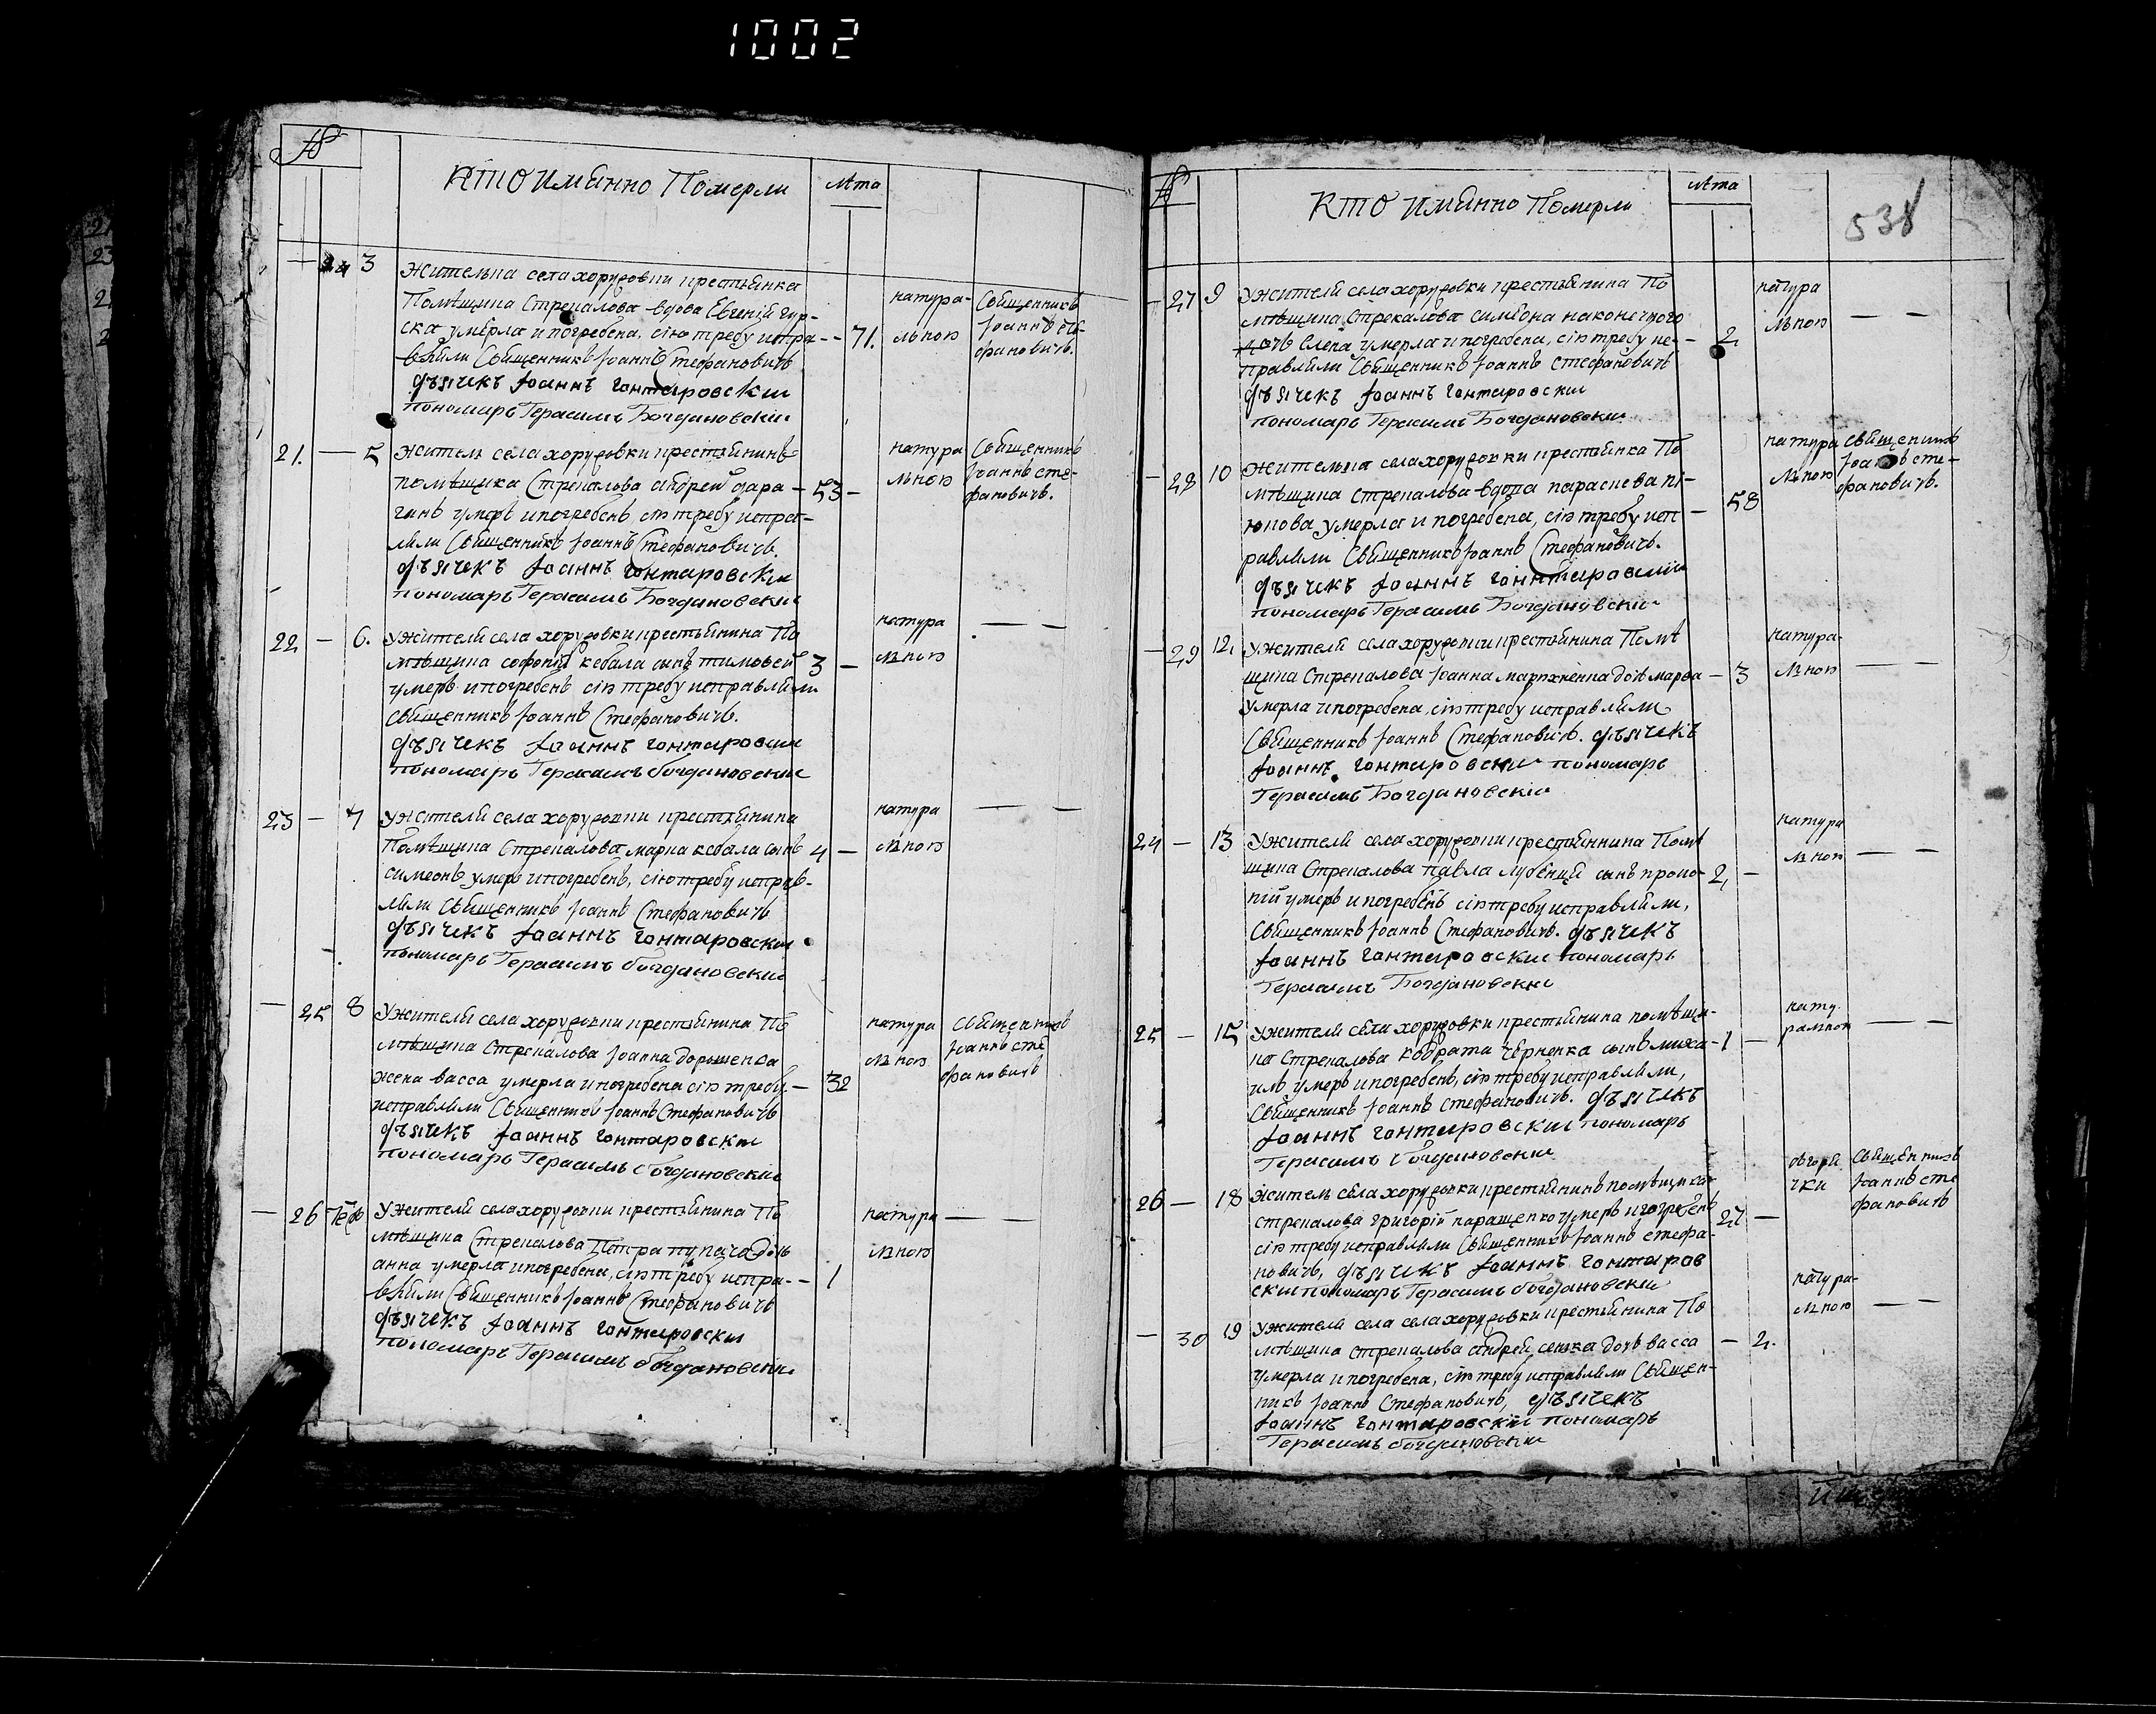 1002
№
Кто именно Померли
Лѣта
24 3
Жителька села хоружовки крестьянка
Помѣщика Стрекалова вдова Евгенїй
ска умерла и погребена, сїю требу испра-
вляли Священникъ Іоаннъ Стефановичъ
дьячекъ Іоаннъ Гонтаровски
пономарь Герасимъ Богдановскии
71.
натура-
льною
Священникъ
Іоаннъ Сте-
фановичъ.
21. — 5
Житель села хоружовки крестьянинъ
помѣщика Стрекалова андрей
умеръ и погребенъ, сїю требу испра-
ляли Священникъ Іоаннъ Стефановичъ.
дьячекъ Іоаннъ Гонтаровски
пономарь Герасимъ Богдановскии
— 53 —
натура
льною
Священникъ
Іоаннъ Сте-
фановичъ.
22 — 6.
У жителя села хоружовки крестьянина По
мѣщика софонїй кебала сынъ тимофей
умеръ и погребенъ сїю требу исправляли
Священникъ Іоаннъ Стефановичъ.
дьячекъ Іоаннъ Гонтаровски
пономарь Герасимъ Богдановскии
3 —
натура
льною
— —
23 — 7
У жителя села хоружовки крестьянина
Помѣщика Стрекалова марка кебала сынъ
симеонъ умеръ и погребенъ, сїю требу исправ-
ляли Священникъ Іоаннъ Стефановичъ
дьячекъ Іоаннъ Гонтаровски
пономарь Герасимъ Богдановскии
4 —
натура
льною
— —
— 25 8
У жителя села хоружовки крестьянина По
мѣщика Стрекалова Іоанна дорошенка
жена васса умерла и погребена сїю требу
исправляли Священникъ Іоаннъ Стефановичъ
дьячекъ Іоаннъ Гонтаровски
пономарь Герасимъ Богдановскїи
— 32
натура
льною
Священникъ
Іоаннъ Сте
фановичъ
— 26
У жителя села хоружовки крестьянина По
мѣщика Стрекалова Петра пугача дочь
анна умерла и погребена, сїю требу испра-
вляли Священникъ Іоаннъ Стефановичъ
дьячекъ Іоаннъ Гонтаровски
пономарь Герасимъ Богдановскїи
— 1
натура
льною
— —
№
Кто именно Померли
Лѣта
538
— 27 9
У жителя села хоружовки крестьянина По
мѣщика Стрекалова симеона наконечного
дочь Елена умерла и погребена, сїю требу ис-
правляли Священникъ Іоаннъ Стефановичъ
дьячекъ Іоаннъ Гонтаровски
пономарь Герасимъ Богдановскии
— 2
натура
льною
— —
— 28 10
Жителька села хоружовки крестьянка По
мѣщика Стрекалова вдова параскева
умерла и погребена, сїю требу исп
равляли Священникъ Іоаннъ Стефановичъ.
дьячекъ Іоаннъ Гонтаровски
пономарь Герасимъ Богдановскии
— 58
натура
льною
Священникъ
Іоаннъ Сте-
фановичъ.
— 29 12
У жителя села хоружовки крестьянина Помѣ
щика Стрекалова Іоанна дочь марфа
умерла и погребена, сїю требу исправляли
Священникъ Іоаннъ Стефановичъ. дьячекъ
Іоаннъ Гонтаровски пономарь
Герасимъ Богдановскїи
— 3
натура-
льною
— —
24 — 13
У жителя села хоружовки крестьянина Помѣ
щика Стрекалова павла сынъ проко-
пїй умеръ и погребенъ сїю требу исправляли,
Священникъ Іоаннъ Стефановичъ. дьячекъ
Іоаннъ Гонтаровски пономарь
Герасимъ Богдановскии
2 —
натура
льною
— —
25 — 15
У жителя села хоружовки крестьянина помѣщи-
ка Стрекалова кодрата черненка сынъ миха-
илъ умеръ и погребенъ, сїю требу исправляли,
Священникъ Іоаннъ Стефановичъ. дьячекъ
Іоаннъ Гонтаровски пономарь
Герасимъ Богдановскии
1 —
нату-
ральною
— —
26 — 18
Житель села хоружовки крестьянинъ помѣщика
Стрекалова григорїй паращенко умеръ и погребенъ
сїю требу исправляли Священникъ Іоаннъ Стефа-
новичъ, дьячекъ Іоаннъ Гонтаров
ски пономарь Герасимъ Богдановскии
27 —
Священникъ
Іоаннъ Сте
фановичъ
— 30 19
У жителя села села хоружовки крестьянина По
мѣщика Стрекалова андрей сенка дочь васса
умерла и погребена, сїю требу исправляли Священ-
никъ Іоаннъ Стефановичъ, дьячекъ
Іоаннъ Гонтаровскїи пономарь
Герасимъ Богдановскии
— 2.
натура-
льною
— —